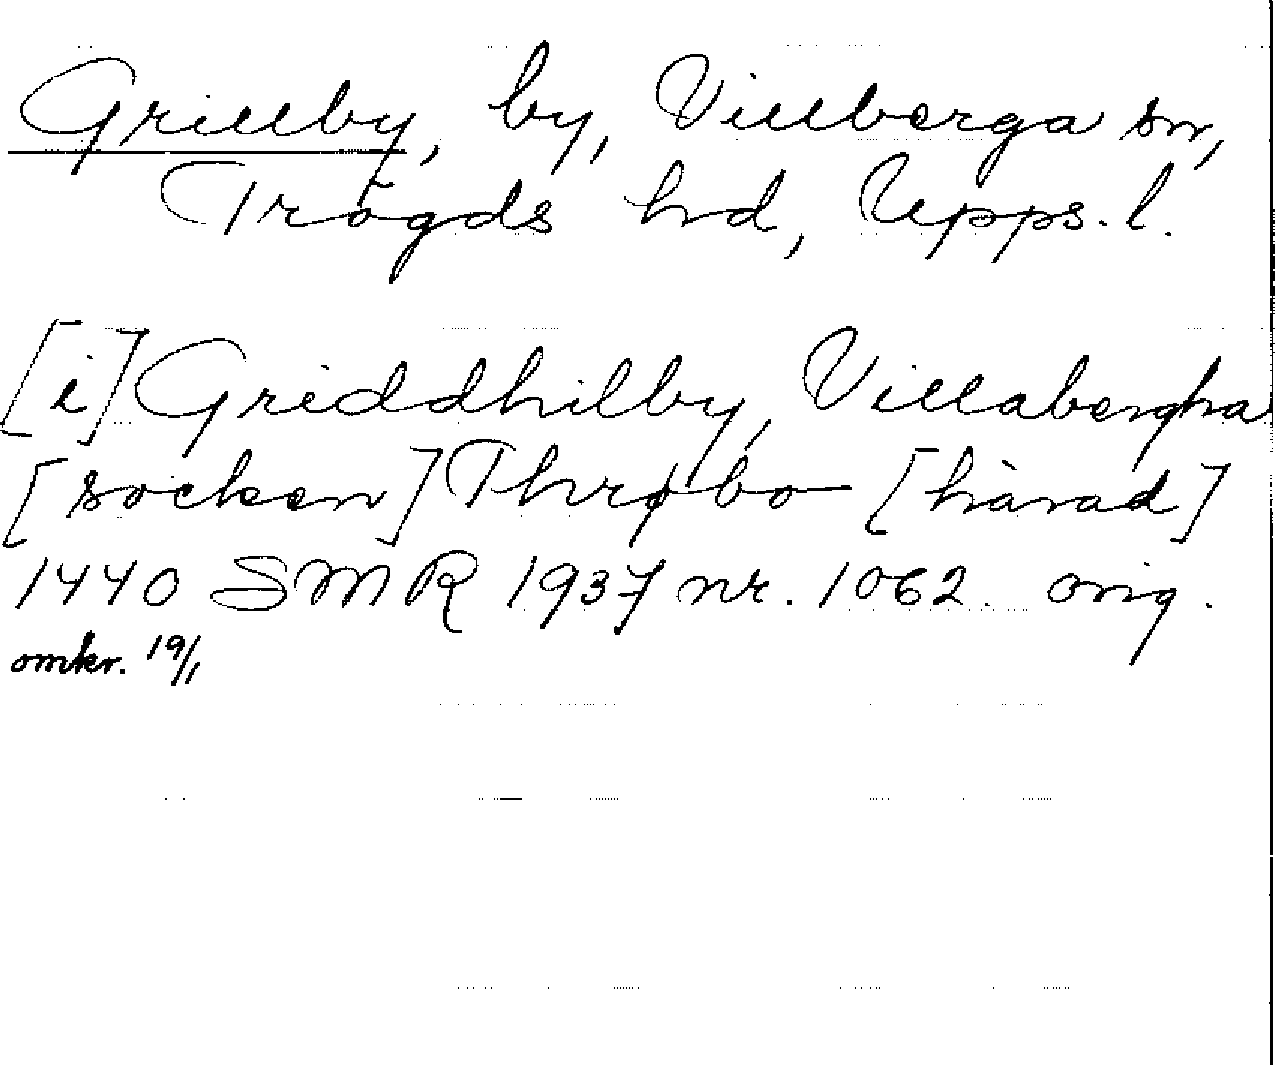 Grillby, by, Villberga sn,
Trögds hd, Upps. l.
[i] Griddhilby, Villabergha
[socken] Thrøbo [härad]
1440 SMR 1937 nr. 1062. orig.
omkr. 19/1